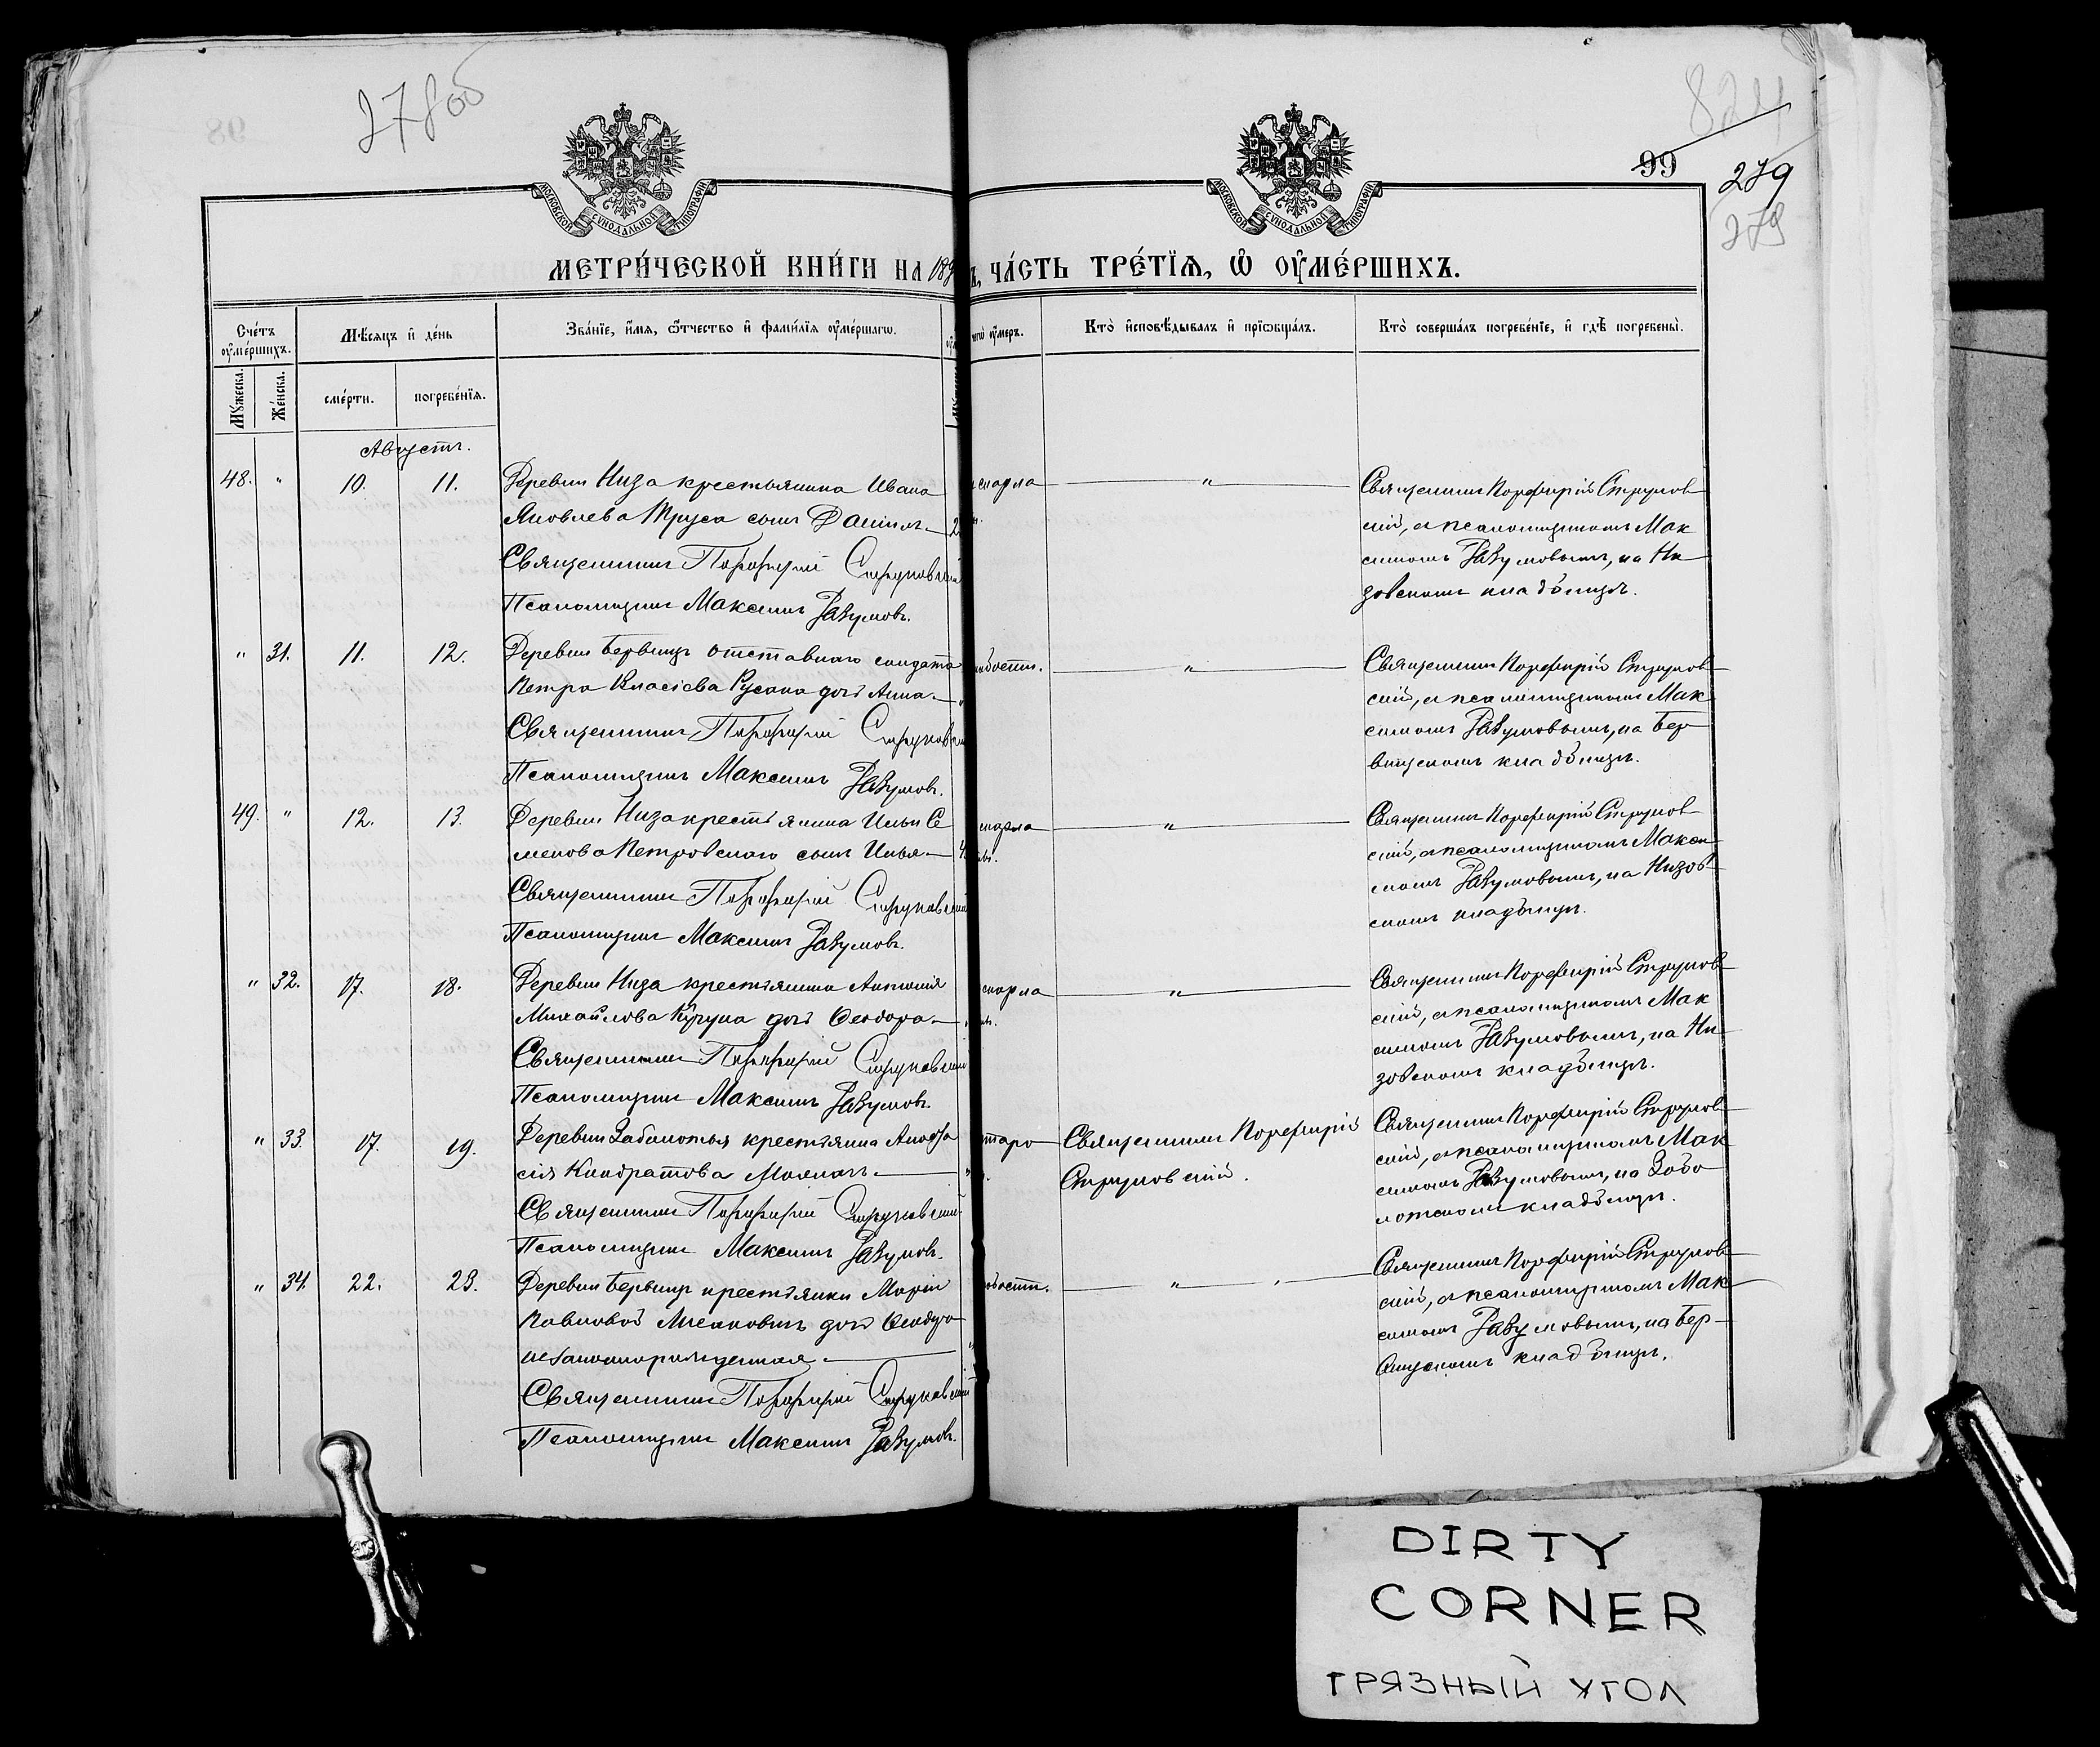 27 806
98
824
99
279
279
МОСКОВСКОЙ СѴНОДАЛЬНОЙ ТИПОГРАФІИ
МОСКОВСКОЙ СѴНОДАЛЬНОЙ ТИПОГРАФІИ
МЕТРИ́ЧЕСКОЙ КНИ́ГИ НА 189
ЧА́СТЬ ТРЕ́ТЇѦ, Ѽ ОУ҆МЕ́РШИХЪ.
Сче́тъ оу҆ме́ршихъ.
Мѣ́сяцъ и҆ де́нь
Зва́нїе, и҆́мя, ѻ҆́тчество и҆ фами́лїя оу҆ме́ршагѡ.
чегѡ̀ оу҆́меръ.
Кто̀ и҆сповѣ́дывалъ и҆ прїѡбща́лъ.
Кто̀ соверша́лъ погребе́нїе, и҆ гдѣ̀ погребены̀.
Мꙋ́жеска.
Же́нска.
сме́рти.
погребе́нїя.
Августъ.
48. " 10. 11. Деревни Низа крестьянина Ивана
Яковлева Труса сынъ Даніилъ
Священникъ Порфирій Струковскій
Псаломщикъ Максимъ Разумовъ.
" Священникъ Порфирій Струков
скій, съ псаломщикомъ Мак
симомъ Разумовымъ, на Ни
зовскомъ кладбищѣ.
" 31. 11. 12. Деревни Бервищъ отставнаго солдата
Петра Власіева Русака дочь Анна
Священникъ Порфирій Струковскій
Псаломщикъ Максимъ Разумовъ.
" Священникъ Порфирій Струков
скій, съ псаломщикомъ Мак
симомъ Разумовымъ, на Бер
вищскомъ кладбищѣ.
49. " 12. 13. Деревни Низа крестьянина Ильи Се
менова Петровскаго сынъ Илья
Священникъ Порфирій Струковскій
Псаломщикъ Максимъ Разумовъ.
" Священникъ Порфирій Струков
скій, съ псаломщикомъ Макси
момъ Разумовымъ, на Низов
скомъ кладбищѣ.
" 32. 17. 18. Деревни Низа крестьянина Антонія
Михайлова дочь Ѳеодора
Священникъ Порфирій Струковскій
Псаломщикъ Максимъ Разумовъ.
" Священникъ Порфирій Струков
скій, съ псаломщикомъ Мак
симомъ Разумовымъ, на Ни
зовскомъ кладбищѣ.
" 33. 17. 19. Деревни Заболотья крестьянина
Кондратова
Священникъ Порфирій Струковскій
Псаломщикъ Максимъ Разумовъ.
Священникъ Порфирій
Струковскій.
Священникъ Порфирій Струков
скій, съ псаломщикомъ Мак
симомъ Разумовымъ, на Забо
лотскомъ кладбищѣ.
" 34. 22. 23. Деревни Бервищъ крестьянки Маріи
Павловой дочь Ѳеодора
незаконнорожденная.
Священникъ Порфирій Струковскій
Псаломщикъ Максимъ Разумовъ.
" Священникъ Порфирій Струков
скій, съ псаломщикомъ Мак
симомъ Разумовымъ, на Бер
вищскомъ кладбищѣ.
DIRTY
CORNER
ГРЯЗНЫЙ УГОЛ